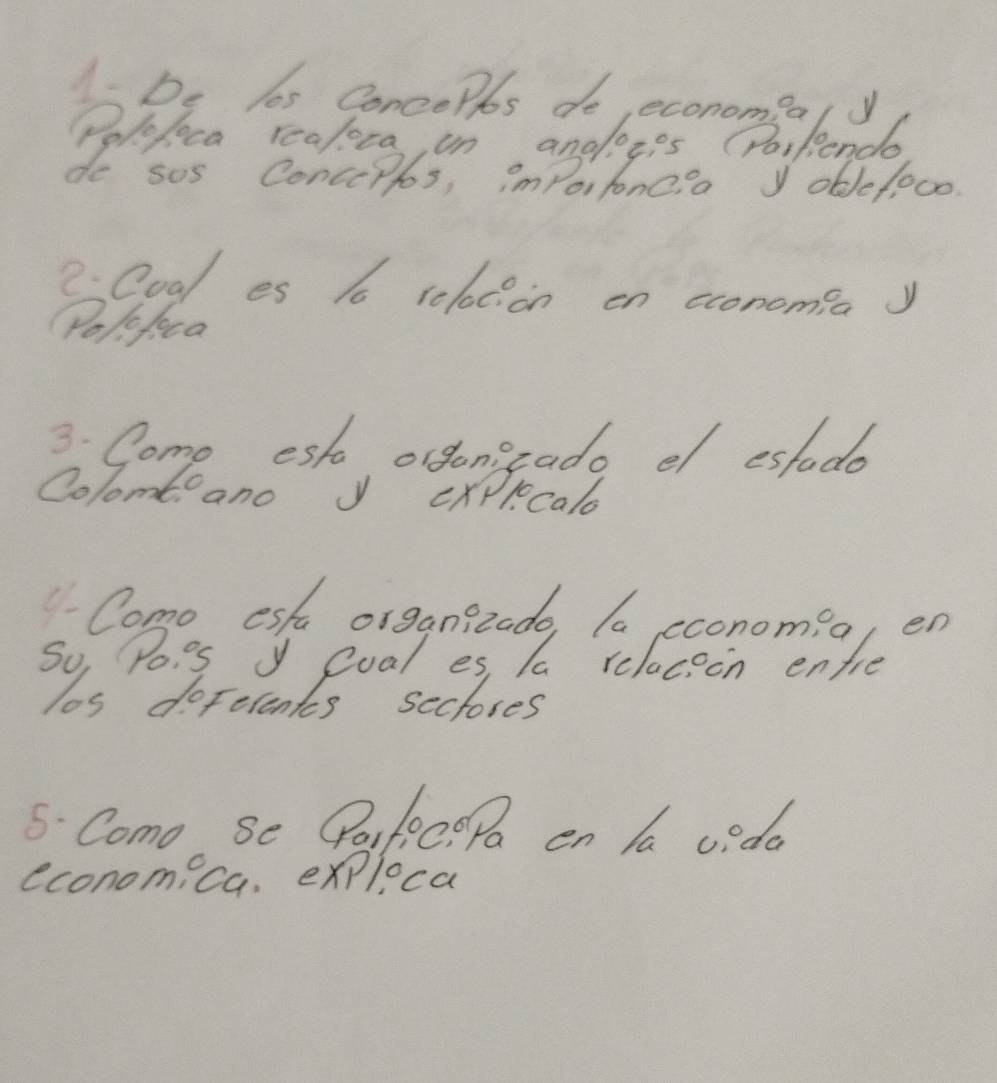 1- De los ConcePtos de economia y
Politica realiza un analizis Partiendo
de sus ConcePtos, imPortancia y obletivo.
2- Cual es la relacion en economia y
Politica
3- Como esta organizado el estado
Colombiano y exPlicalo
4- Como esta organizado la economia, en
su Pais y Cual es la relacion entre
los diferentes sectores
5- Como se ParticiPa en la vida
economica. exPlica